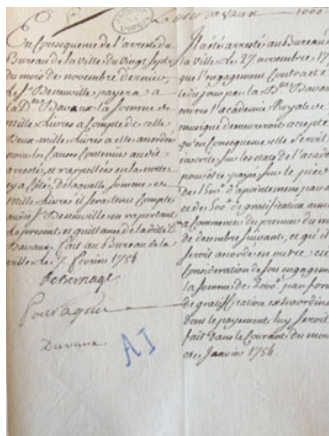 1000
En Consequence de l'arresté du
Bureau de la Ville du Vingt Sept
du mois de novembre dernier,
payera a
la Dlle Davaux la somme de
mille livres a Compte de celle de
Deux mille livres a elle accordée
pour les Causes Contenües audit
arresté, et rappellées en la notte
cy a Côté, de laquelle somme de
Mille livres il sera tenu Compte
audit Sr en raportant
le present, et quittance de la dlle
Davaux. fait au Bureau de la
ville le 7 fevrier 1756
De Bernage
Davaux
AI
Il a été arresté au Bureau de
la Ville le 27 novembre 17
que l'engagement Contracté
led. jour par la Dlle Davaux
envers l'academie Royale de
musique demeureroit accepté
qu'en Consequence elle seroit
inscritte sur les etats de l'academie
pour être payée sur le pied
de 1500 d'apointement par an
et de 500 de gratification annuelle
a Commencer du premier du mois
de decembre suivant, et qu'il lui
seroit accordé en outre en
Consideration de son engagement
la somme de 2000 par forme
de gratiffication extraordinaire
dont le payement luy seroit
fait dans le Courant du mois
de Janvier 1756